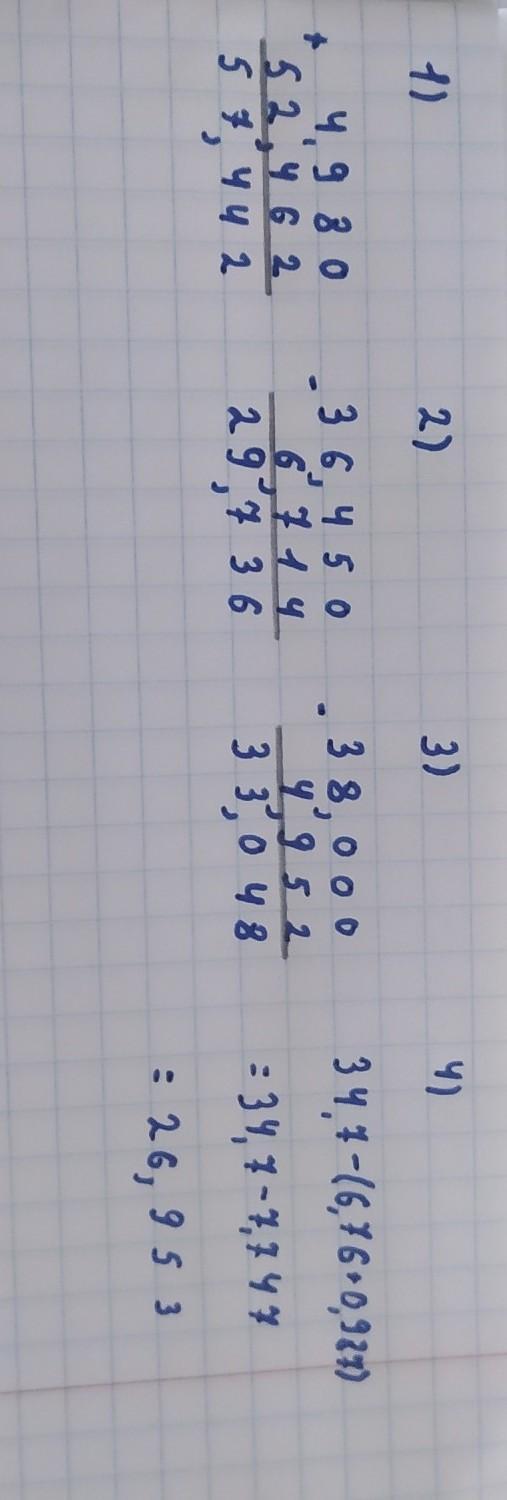 1)
+
4,980
52,462
57,442
2)
- 36,450
6,714
29,736
3)
- 38,000
4,952
33,048
4)
34,7-(6,76+0,987)
=34,7-7,747
=26,953